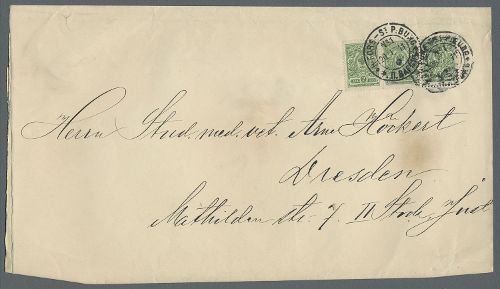 ST P.BU
Herrn Stud. med. vet. Arne Höckert
Dresden
Mathilden str. 7. II Stock, Just